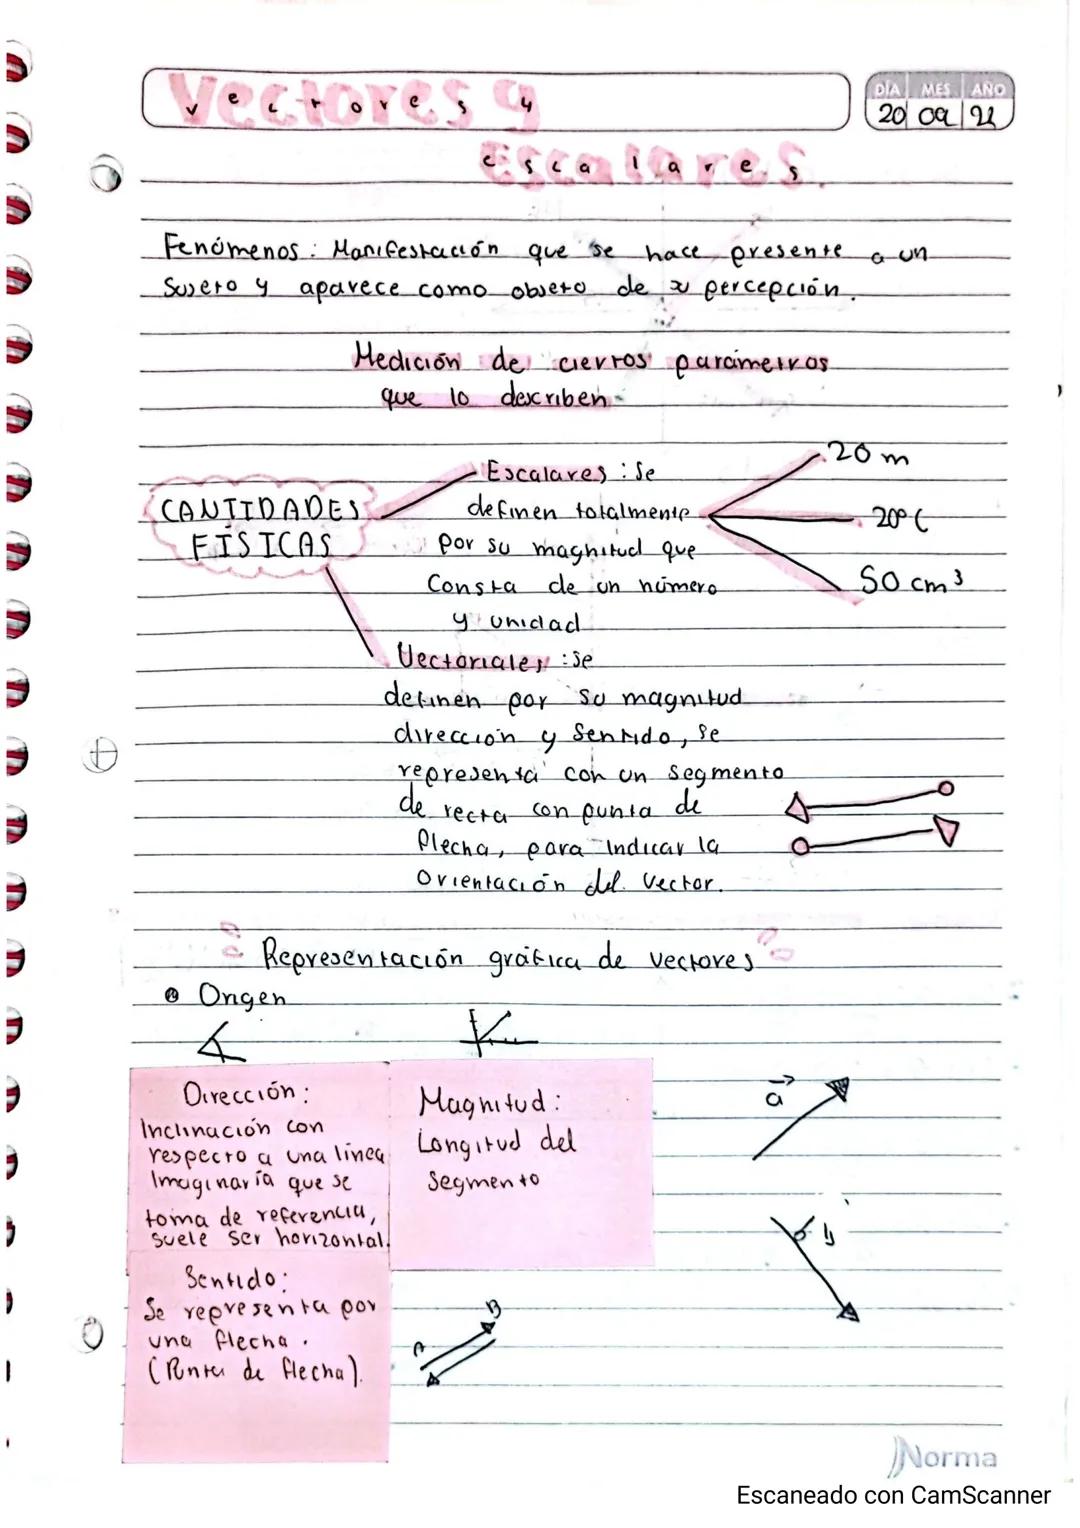 Vectores y
DÍA MES AÑO
20 09 21
Escalares.
Fenómenos: Manifestación que se hace presente a un
Sujeto y aparece como objeto de su percepción.
Medición de ciertos parámetros
que lo describen
CANTIDADES
FÍSICAS
Escalares: Se
definen totalmente
por su magnitud que
Consta de un número
y unidad
20 m
20° C
50 cm³
Vectoriales: Se
definen por su magnitud
dirección y Sentido, se
representa con un segmento
de recta con punta de
flecha, para Indicar la
Orientación del vector.
Representación gráfica de vectores
Origen
Dirección:
Inclinación con
respecto a una línea
Imaginaría que se
toma de referencia,
suele ser horizontal.
Magnitud:
Longitud del
Segmento
a
Sentido:
Se representa por
una flecha.
(Punta de flecha).
A B
Norma
Escaneado con CamScanner